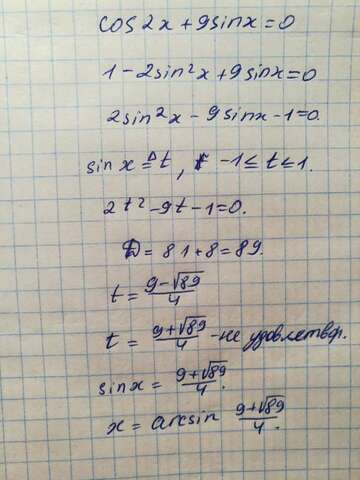 cos2x+9sinx=0
1-2sin²x+9sinx=0
2sin²x-9sinx-1=0.
sinx≜t, -1≤t≤1.
2t²-9t-1=0.
D=81+8=89.
t=(9-√89)/4
t=(9+√89)/4-не удовлетвор.
sinx=(9+√89)/4.
x=arcsin (9+√89)/4.